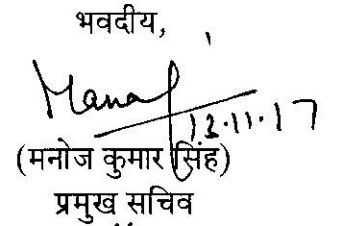 भवदीय,
Manoj
13.11.17
(मनोज कुमार सिंह)
प्रमुख सचिव